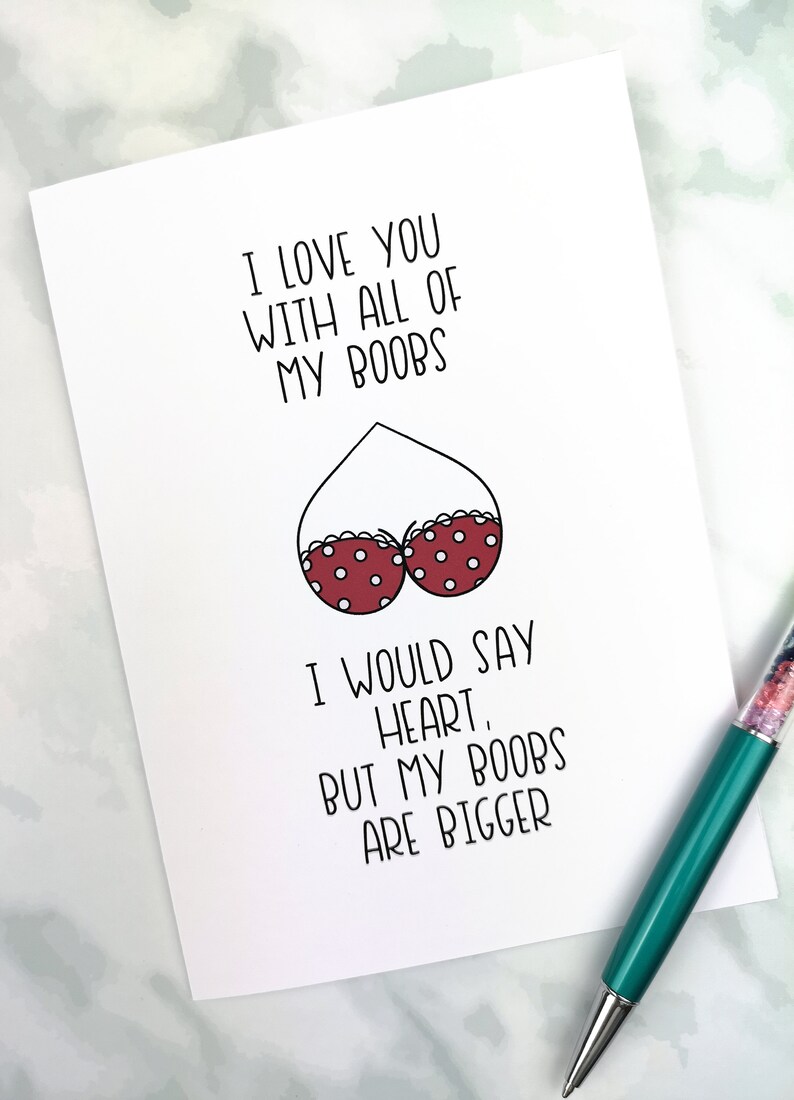 I LOVE YOU
WITH ALL OF
MY BOOBS
I WOULD SAY
HEART,
BUT MY BOOBS
ARE BIGGER